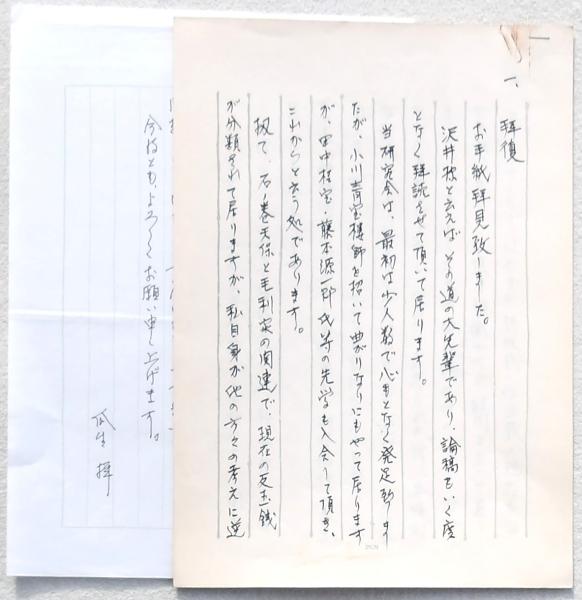 一、
拝復
お手紙拝見致しました。
沢井様と云えば その道の大先輩であり、論稿もいく度
となく拝読させて頂いて居ります。
当研究会は、最初は少人数で心もとなく発足致しま
たが、小川青宝樓師を招いて曲がりなりにもやって居ります
が、田中桂宝・藤本源一郎氏等の先学も入会して頂き、
これからと云う処であります。
扨て、石ノ巻天保と毛利家の関連で、現在の反玉銭
が分類されて居りますが、私自身が他の方々の考えに逆
今後とも、よろしくお願い申し上げます。
瓜生 揮